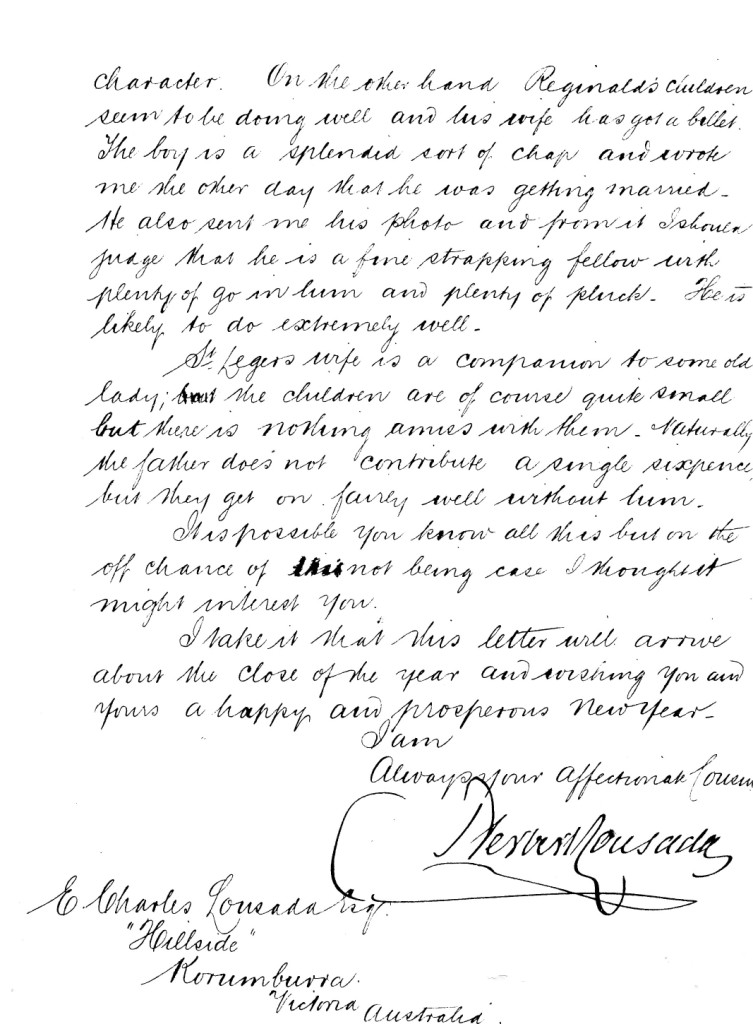 character. On the other hand Reginald's children
seem to be doing well and his wife has got a billet.
The boy is a splendid sort of chap and wrote
me the other day that he was getting married -
He also sent me his photo and from it I should
judge that he is a fine strapping fellow with
plenty of go in him and plenty of pluck - He is
likely to do extremely well -
St. Legers wife is a companion to some old
lady; the children are of course quite small
but there is nothing amiss with them - Naturally
the father does not contribute a single sixpence
but they get on fairly well without him -
It is possible you know all this but on the
off chance of not being case I thought it
might interest you.
I take it that this letter will arrive
about the close of the year and wishing you and
yours a happy and prosperous New Year -
I am
Always your affectionate Cousin
Herbert Lousada
E Charles Lousada Esq.
"Hillside"
Korumburra.
Victoria Australia.